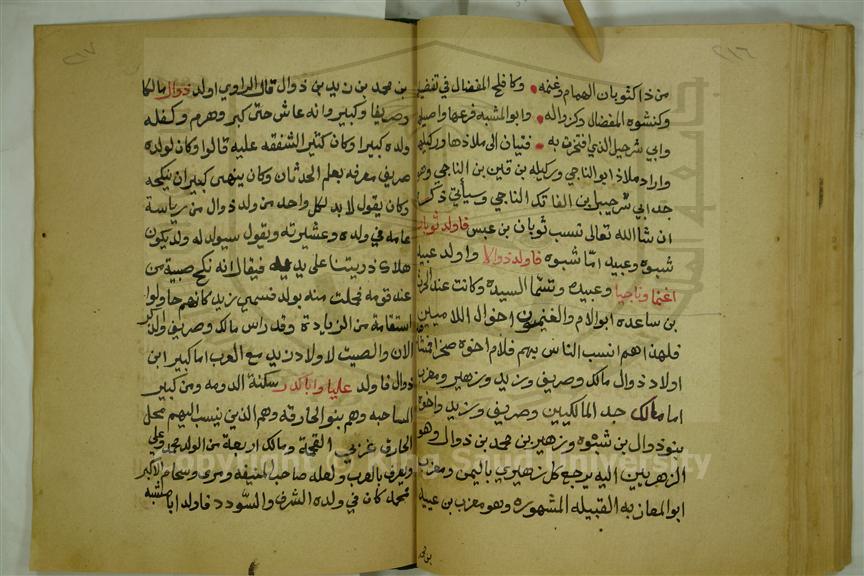 ٢١٦
من ذا كثوبان الهمام وغنمه وكافلح المفضال في تفضيل
وكنشوه المفضال وكزواله وابو المشبه فرعها واصيل
وابي شرحيل الذي افتخرت به فتيان الى ملاذها وركيله
واراد ملاذ ابو الناجي وركيله بن قين بن الناجي وهو
جد ابي شرحبيل بن الفاتك الناجي وسيأتي ذكره
ان شا الله تعالى نسب ثوبان بن عبس فاولد ثوبان
شبوه وعبيه امّا شبوه فاولد ذوالا واولد عبيه
اغنما وناجيا وعبيده وتسمّا السيدة وكانت عند الحرث
بن ساعده ابو الام والغنميون اخوال اللاميين
فلهذا هم انسب الناس بهم فلام اخوه
اولاد ذوال مالك وصريف وزيد وزهير ومعزب
اما مالك جد المالكيين وصريف وزيد واخوه
بنو ذوال بن شبوه وزهير بن محمد بن ذوال وهو
الزهريين اليه يرجع كل زهيري باليمن ومعزب
ابو المعازبه القبيله المشهوره وهو معزب بن عبيه
بن محمد
٢١٧
بن محمد بن زيد بن ذوال قال الراوي اولد ذوال مالكا
وصريفا وكبير وانه عاش حتى كبر وهرم وكفله
ولده كبيرا وكان كثير الشفقه عليه قالوا وكان لولده
صريف معرفه بعلم الحدثان وكان ينهى كبير ان ينكحه
وكان يقول لا بد لكل واحد من ولد ذوال من رياسة
عامه في ولده وعشيرته ويقول سيولد له ولد يكون
هلاك ذريتنا على يديه فيقال انه نكح صبية من
عنه قومه فحملت منه بولد فسمي زيد كانهم حاولوا
استقامة من الزيادة وقد راس مالك وصريف ولكن
الان والصيت لاولاد زيد مع العرب اما كبير ابن
ذوال فاولد عليا وابا كدر سكنة الدومه ومن كبير
الساحبه وهم بنو الحارقه وهم الذين ينسب اليهم محل
الحارق غربي القحمة ومالك اربعة من الولد محمد وعلي
ويعرف بالعرب ولعله صاحب المنيفه ومرى وسحام الاكبر
فمحمد كان في ولده الشرف والسودد فاولد ابا مشبه